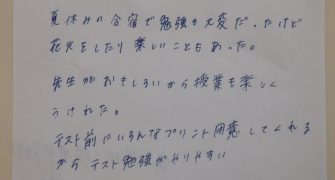 夏休みの合宿で勉強も大変だったけど
花火をしたり楽しいこともあった。
先生がおもしろいから授業も楽しく
うけれた。
テスト前にいろんなプリント用意してくれる
からテスト勉強がやりやすい